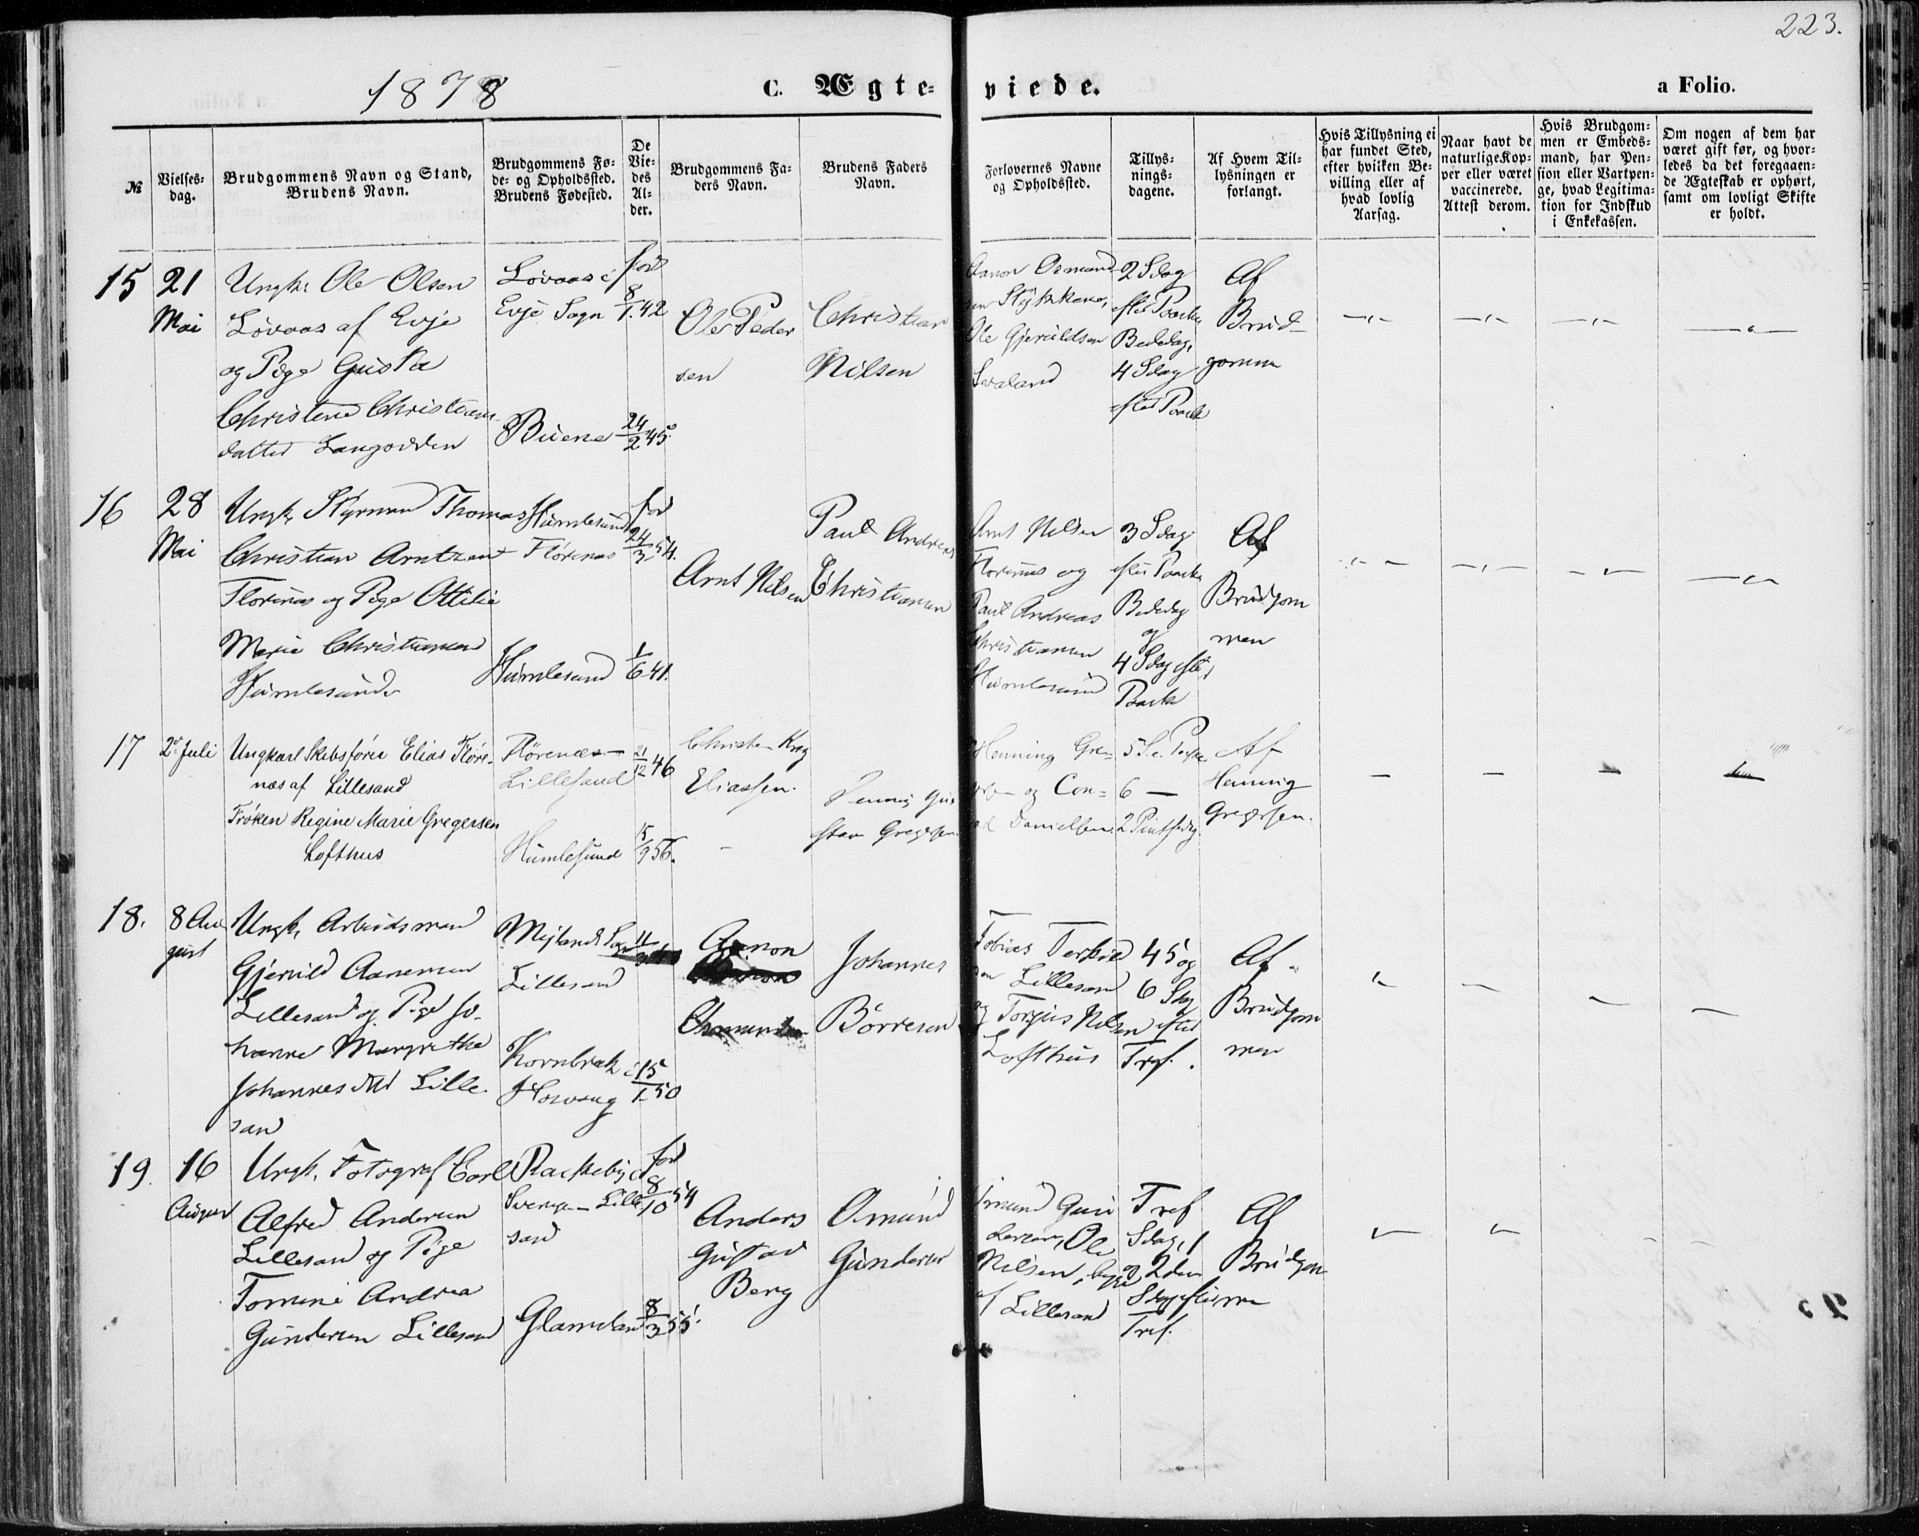 223.
1878
C. Ægte-
viede.
a Folio.
№
Vielses-
dag.
Brudgommens Navn og Stand,
Brudens Navn.
Brudgommens Fø-
de- og Opholdssted.
Brudens Fødested.
De
Vie-
des
Al-
der.
Brudgommens Fa-
ders Navn.
Brudens Faders
Navn.
Forlovernes Navne
og Opholdssted.
Tillys-
nings-
dagene.
Af Hvem Til-
lysningen er
forlangt.
Hvis Tillysning ei
har fundet Sted,
efter hvilken Be-
villing eller af
hvad lovlig
Aarsag.
Naar havt de
naturlige Kop-
per eller været
vaccinerede.
Attest derom.
Hvis Brudgom-
men er Embeds-
mand, har Pen-
sion eller Vartpen-
ge, hvad Legitima-
tion for Indskud
i Enkekassen.
Om nogen af dem har
været gift før, og hvor-
ledes da det foregaaen-
de Ægteskab er ophørt,
samt om lovligt Skifte
er holdt.
15
21
Mai
Ungk. Ole Olsen
Løvaas af Evje
og Pige Gusta
Christene Christians
datter Langodden
Løvaas i
Evje Sogn
Buene
fød
8/1 42
24/2 45.
Ole Peder
sen
Christian
Nilsen
Aanon Osmund
sen Stykkene,
Ole Gjeruldsen
2 Sdag
efter Paaske
Bededag,
4 Sdag
efter Paask
Af
Brud
gomme
16
28
Mai
Ungk. Styrman Thomas
Christian Arntzen
Florenæs og Pige Ottilie
Marie Christiansen
Humlesund
Humlesund
Florenæs
Humlesund
fød
24/3 54.
1/6 41.
Arnt Nilsen
Paul Andreas
Christiansen
Arnt Nilsen
Florenæs og
Paul Andreas
Christiansen
Humlesund
3 Sdag
efter Paaske
Bededag
og
4 Sdag efter
Paask
Af
Brudgom
men
17
2 Juli
Ungkarl Skibsfører Elias Fløre-
næs af Lillesand
Frøken Regine Marie Gregersen
Lofthus
Flørenæs-
Lillesand
Humlesund
21/12 46
15/9 56.
Christen Krog
Eliassen.
Henning Gus
stav Gregersen.
Henning Gre-
og Con-
Danielsen.
6 —
Af
Henning
Gregersen.
18.
8 Au
gust
Ungk. Arbeidsmand
Gjeruld Aanensen
Lillesand og Pige Jo-
hanne Margrethe
Johannesdtr Lille
sand
Lillesand
Kornbrek i
Høivaag
15/1 50
Aanon
Osmundsen
Johannes
Børresen
Tobias Terkild
sen Lillesand
og Torjus Nilsen
Lofthus
4 5 og
6 Sdag
efter
Tref.
Af
Brudgom
men
19.
16
August
Ungk. Fotograf Carl
Alfred Andersen
Lillesand og Pige
Tomine Andrea
Gundersen Lillesand
Rackeby i
Sverige - Lille
sand
Glamsland
fød
8/10 54
8/3 55.
Anders
Gustav
Berg
Osmund
Gundersen
Osmund Gun
dersen, Ole
Nilsen, begge
af Lillesand
Tref
Sdag, 1
og 2den
Sdag efter
Tref.
Af
Brudgom
men